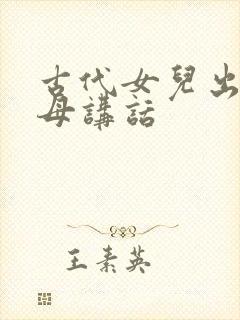 古代女兒出
母講話
王素英